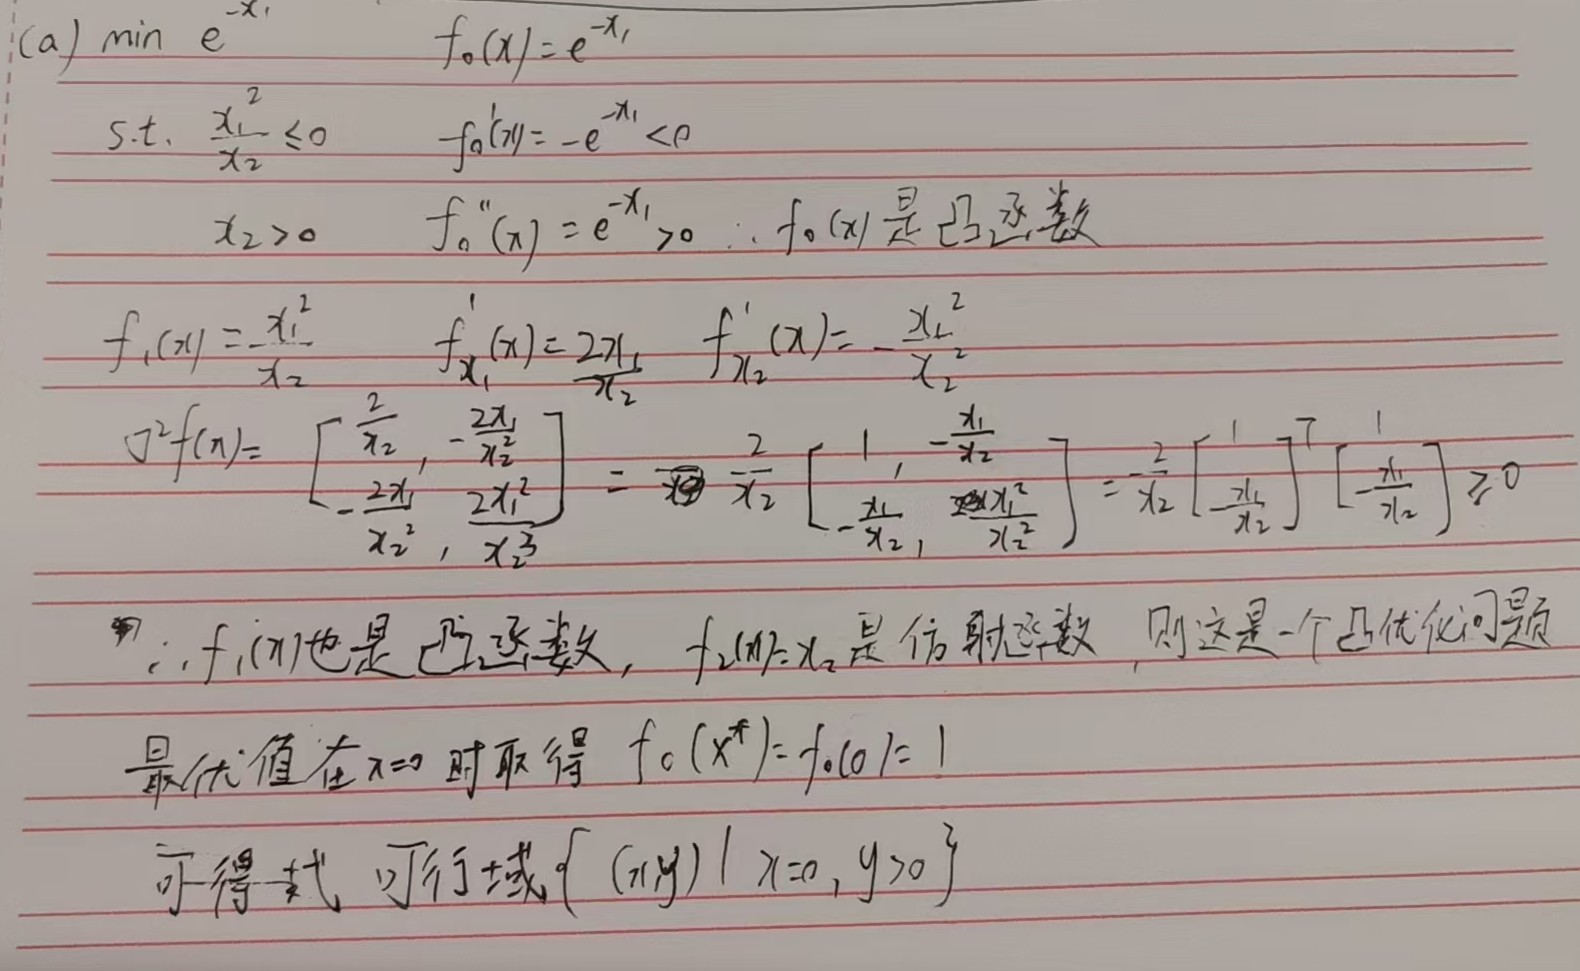 (a) min e^{-x_1} f_0(x) = e^{-x_1}
s.t. \frac{x_1^2}{x_2} ≤ 0 f_0'(x) = -e^{-x_1} < 0
x_2 > 0 f_0''(x) = e^{-x_1} > 0 ∴ f_0(x) 是凸函数
f_1(x) = \frac{x_1^2}{x_2} f'_{x_1}(x) = \frac{2x_1}{x_2} f'_{x_2}(x) = -\frac{x_1^2}{x_2^2}
∇²f(x) = [\frac{2}{x_2}, -\frac{2x_1}{x_2^2}; -\frac{2x_1}{x_2^2}, \frac{2x_1^2}{x_2^3}] = \frac{2}{x_2} [1, -\frac{x_1}{x_2}; -\frac{x_1}{x_2}, \frac{x_1^2}{x_2^2}] = \frac{2}{x_2} [1; -\frac{x_1}{x_2}]^T [1; -\frac{x_1}{x_2}] ≥ 0
∴ f_1(x) 也是凸函数, f_2(x) = x_2 是仿射函数, 则这是一个凸优化问题
最优值在 x=0 时取得 f_0(x^*) = f_0(0) = 1
可得 可行域 { (x,y) | x=0, y>0 }